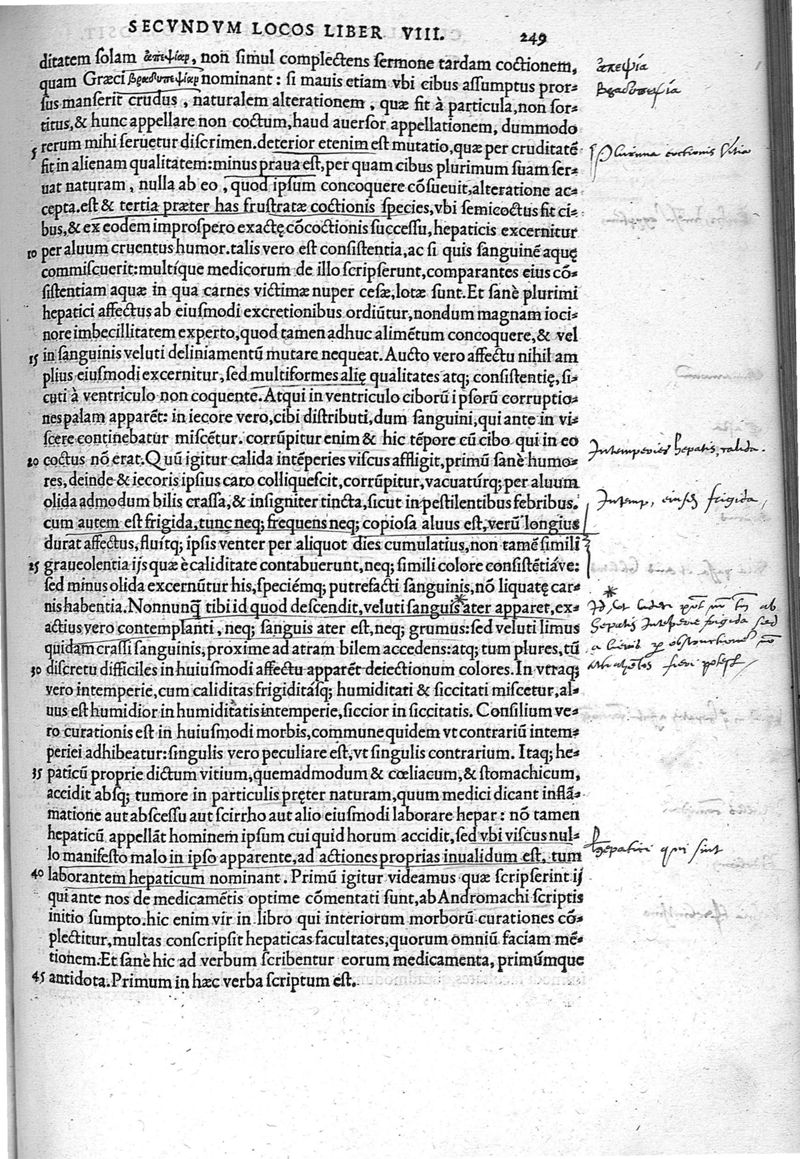 SECVNDVM LOCOS LIBER VIII. 249
ditatem solam ἀπεψίαν, non simul complectens sermone tardam coctionem,
quam Græci βραδυπεψίαν nominant: si mauis etiam vbi cibus assumptus pror-
sus manserit crudus, naturalem alterationem, quæ fit à particula, non sor-
titus, & hunc appellare non coctum, haud auersor appellationem, dummodo
5 rerum mihi seruetur discrimen. deterior etenim est mutatio, quæ per cruditatē
fit in alienam qualitatem: minus praua est, per quam cibus plurimum suam ser-
uat naturam, nulla ab eo, quod ipsum concoquere cōsueuit, alteratione ac-
cepta. est & tertia præter has frustratæ coctionis species, vbi semicoctus fit ci-
bus, & ex eodem improspero exactę cōcoctionis successu, hepaticis excernitur
10 per aluum cruentus humor. talis vero est consistentia, ac si quis sanguinē aquę
commiscuerit: multíque medicorum de illo scripserunt, comparantes eius cō-
sistentiam aquæ in qua carnes victimæ nuper cesæ, lotæ sunt. Et sanè plurimi
hepatici affectus ab eiusmodi excretionibus ordiūtur, nondum magnam ioci-
nore imbecillitatem experto, quod tamen adhuc alimētum concoquere, & vel
15 in sanguinis veluti deliniamentū mutare nequeat. Aucto vero affectu nihil am
plius eiusmodi excernitur, sed multiformes alię qualitates atq; consistentię, si-
cuti à ventriculo non coquente. Atqui in ventriculo ciborū ipsorū corruptio-
nes palam apparēt: in iecore vero, cibi distributi, dum sanguini, qui ante in vi-
scere continebatur miscētur. corrūpitur enim & hic tēpore cū cibo qui in eo
20 coctus nō erat. Quū igitur calida intēperies viscus affligit, primū sanè humo-
res, deinde & iecoris ipsius caro colliquescit, corrūpitur, vacuatúrq; per aluum
olida admodum bilis crassa, & insigniter tincta, sicut in pestilentibus febribus.
cum autem est frigida, tunc neq; frequens neq; copiosa aluus est, verū longius
durat affectus, fluitq; ipsis venter per aliquot dies cumulatius, non tamē simili
25 graueolentia ijs quæ è caliditate contabuerunt, neq; simili colore consistētiáve:
sed minus olida excernūtur his, speciémq; putrefacti sanguinis, nō liquatę car-
nis habentia. Nonnunq̃ tibi id quod descendit, veluti sanguis* ater apparet, ex-
actius vero contemplanti, neq; sanguis ater est, neq; grumus: sed veluti limus
quidam crassi sanguinis, proxime ad atram bilem accedens: atq; tum plures, tū
30 discretu difficiles in huiusmodi affectu apparēt deiectionum colores. In vtraq;
vero intemperie, cum caliditas frigiditásq; humiditati & siccitati miscetur, al-
uus est humidior in humiditatis intemperie, siccior in siccitatis. Consilium ve-
ro curationis est in huiusmodi morbis, commune quidem vt contrariū intem-
periei adhibeatur: singulis vero peculiare est, vt singulis contrarium. Itaq; he-
35 paticū proprie dictum vitium, quemadmodum & cœliacum, & stomachicum,
accidit absq; tumore in particulis pręter naturam, quum medici dicant inflā-
matione aut abscessu aut scirrho aut alio eiusmodi laborare hepar: nō tamen
hepaticū appellāt hominem ipsum cui quid horum accidit, sed vbi viscus nul-
lo manifesto malo in ipso apparente, ad actiones proprias inualidum est, tum
40 laborantem hepaticum nominant. Primū igitur videamus quæ scripserint ij
qui ante nos de medicamētis optime cōmentati sunt, ab Andromachi scriptis
initio sumpto. hic enim vir in libro qui interiorum morborū curationes cō-
plectitur, multas conscripsit hepaticas facultates, quorum omniū faciam mē-
tionem. Et sanè hic ad verbum scribentur eorum medicamenta, primúmque
45 antidota. Primum in hæc verba scriptum est.
ἀπεψία
βραδυπεψία
coctionis vitia
Intemperies hepatis, calida.
Intemp. eiusd. frigida,
hepatis intemperie frigida sed
hepatici qui sint